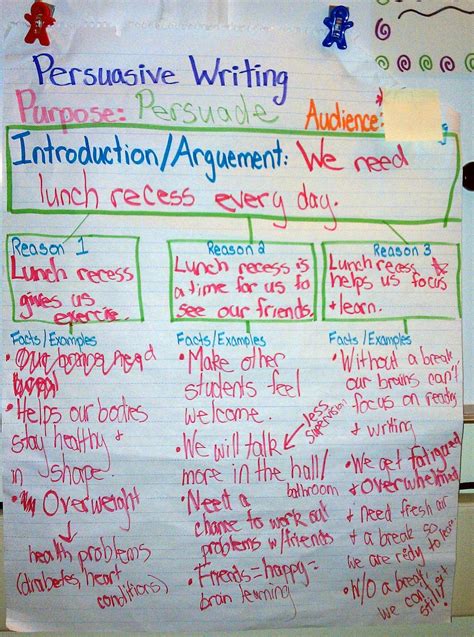 Persuasive Writing
Purpose: Persuade
Audience:
Introduction/Arguement: We need
lunch recess every day.
Reason 1
Lunch recess
gives us
exercise.
Facts/Examples
• Our brains need
• Helps our bodies
stay healthy +
in shape.
• Overweight
health problems
(diabetes, heart
conditions)
Reason 2
Lunch recess is
a time for us to
see our friends.
Facts/Examples
• Make other
students feel
welcome.
• We will talk
less supervision
more in the hall/
bathroom
• Need a
chance to work out
problems w/friends
• Friends = happy =
brain learning
Reason 3
Lunch recess
helps us focus
+ learn.
Facts/Examples
• Without a break
our brains can't
focus on reading
+ writing
• We get fatigued
+ overwhelmed
+ Need fresh air
+ a break so
we are ready to
• W/O a break,
we can't sit
still!